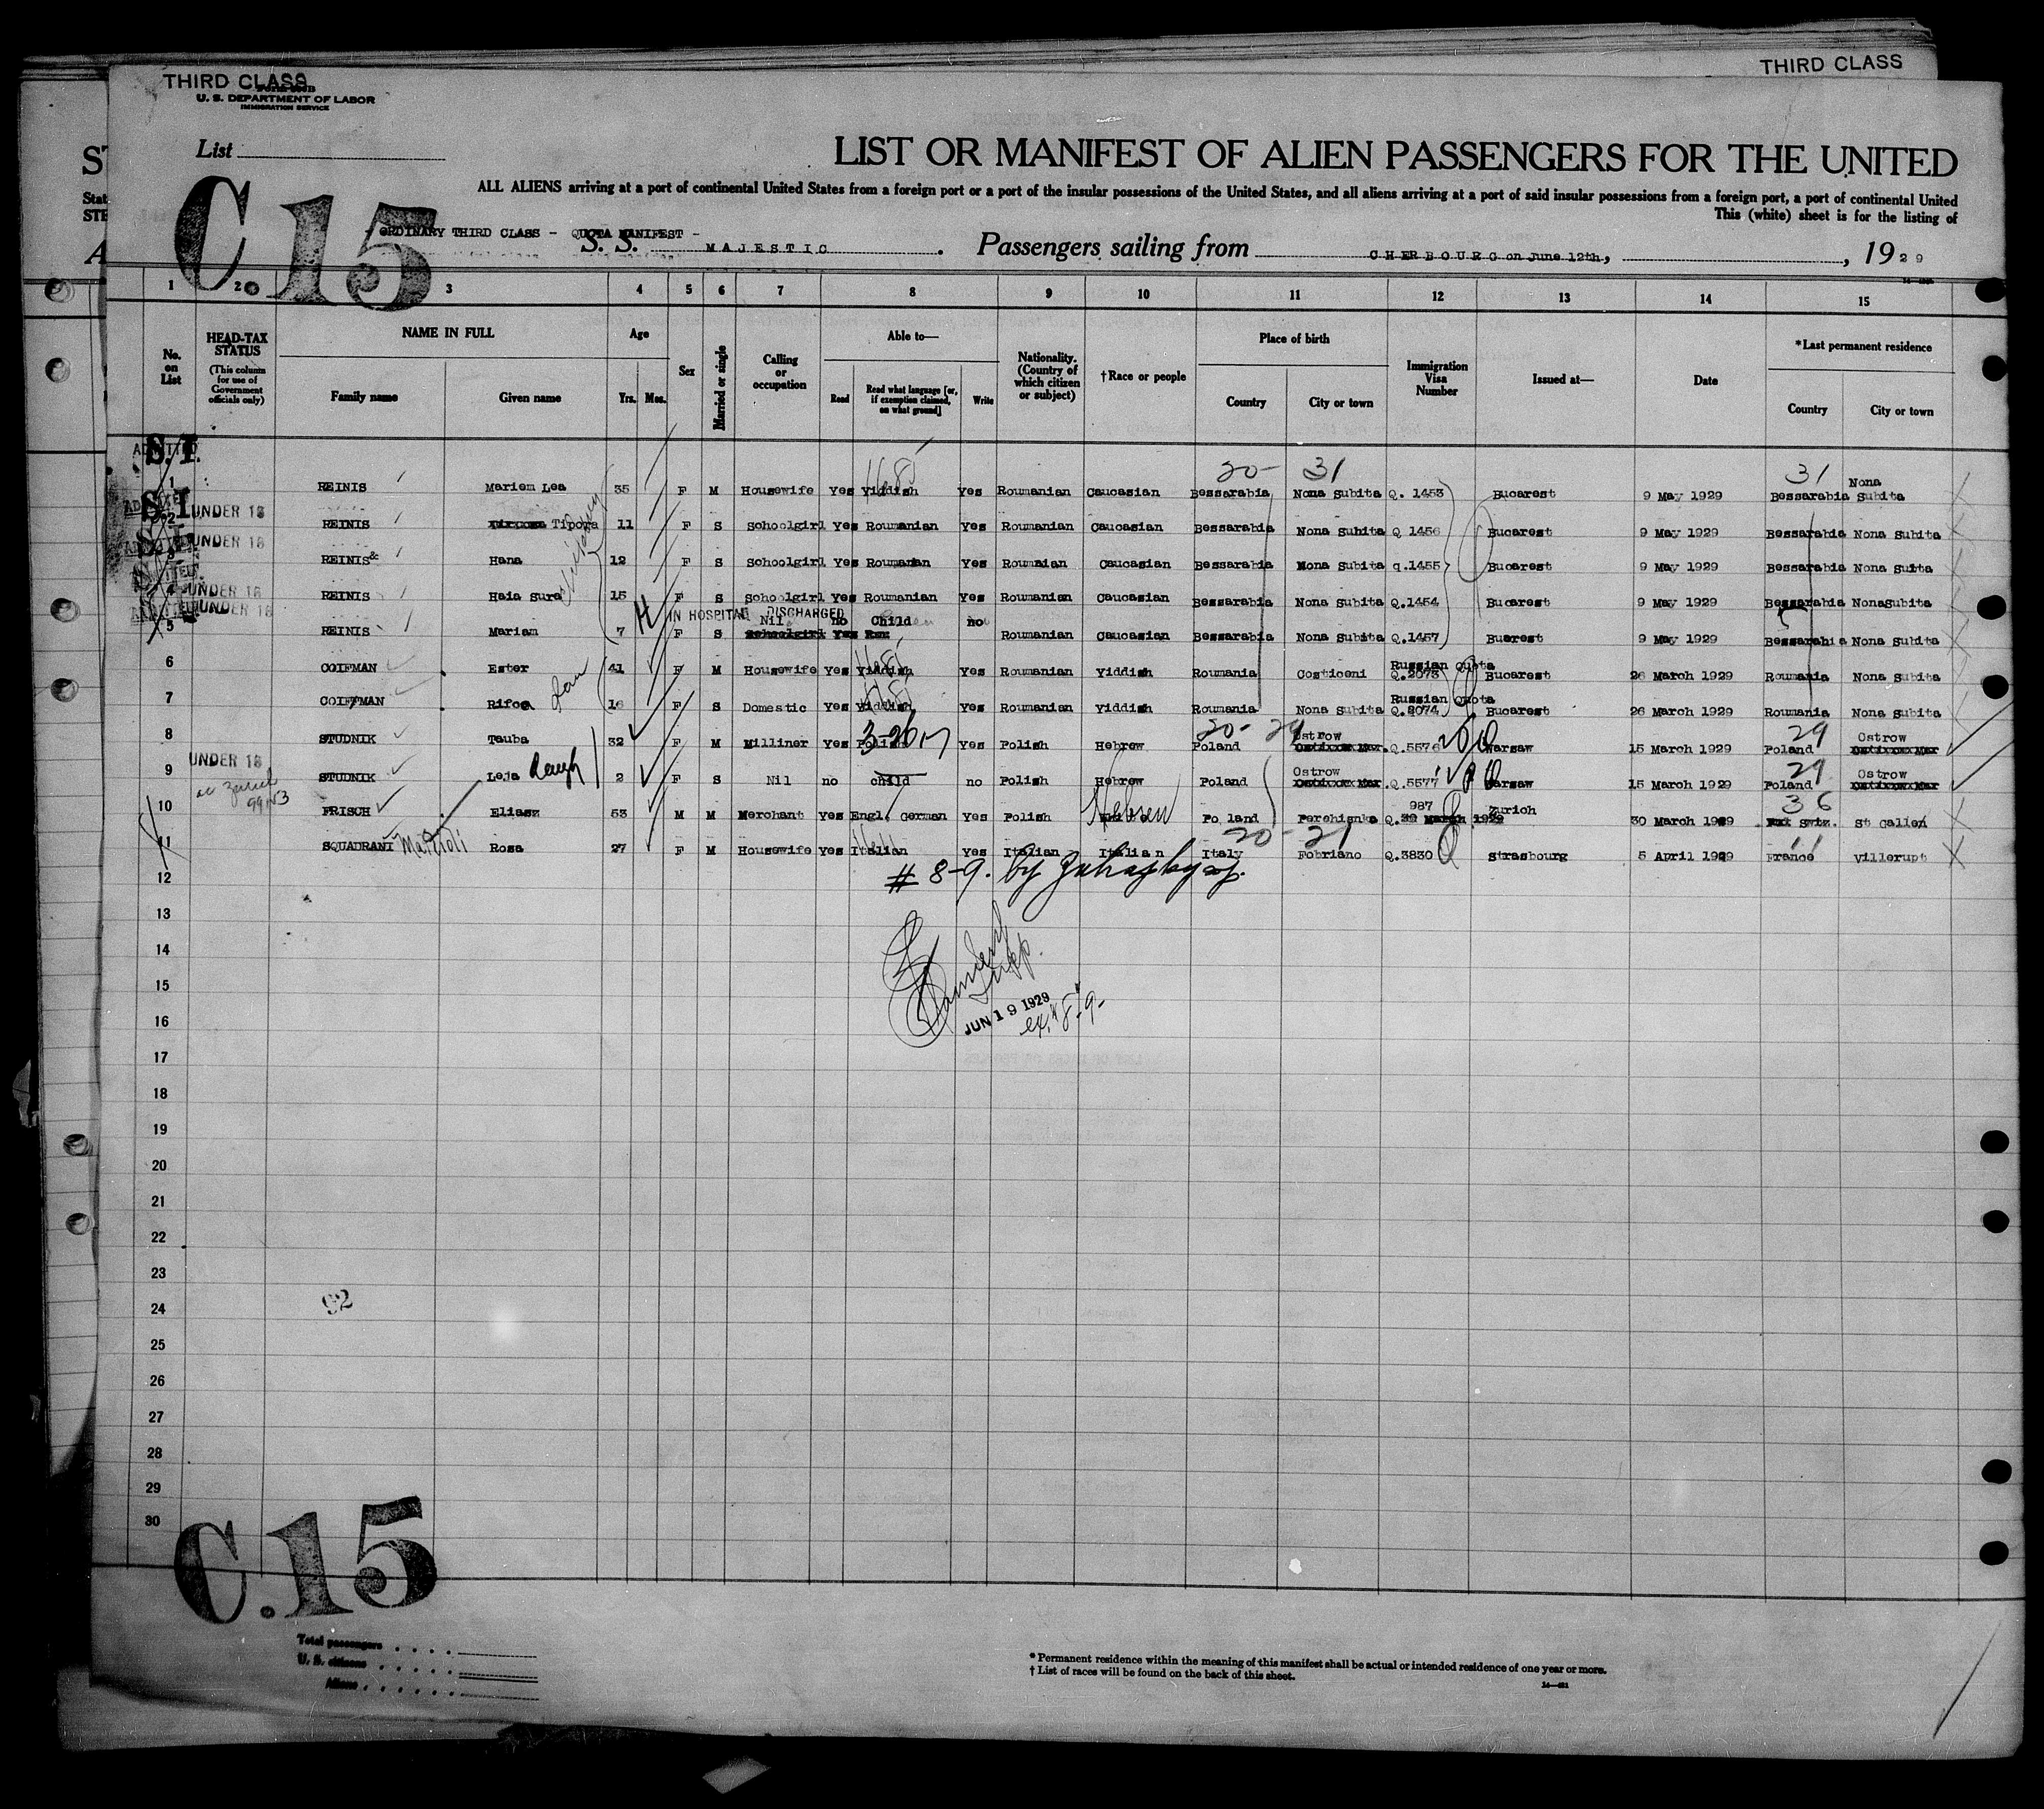 THIRD CLASS
THIRD CLASS
U. S. DEPARTMENT OF LABOR
IMMIGRATION SERVICE
List
LIST OR MANIFEST OF ALIEN PASSENGERS FOR THE UNITED
ALL ALIENS arriving at a port of continental United States from a foreign port or a port of the insular possessions of the United States, and all aliens arriving at a port of said insular possessions from a foreign port, a port of continental United
This (white) sheet is for the listing of
C.15
ORDINARY THIRD CLASS - QUOTA MANIFEST -
S. S. MAJESTIC. Passengers sailing from CHERBOURG on June 12th, , 1929
1 2 3 4 5 6 7 8 9 10 11 12 13 14 15
No. on List
HEAD-TAX STATUS (This column for use of Government officials only)
NAME IN FULL
Family name Given name
Age
Yrs. Mos.
Sex
Married or single
Calling or occupation
Able to—
Read Read what language [or, if exemption claimed, on what ground] Write
Nationality. (Country of which citizen or subject)
†Race or people
Place of birth
Country City or town
Immigration Visa Number
Issued at—
Date
*Last permanent residence
Country City or town
S.I. ADMITTED
20- 31 31
1 REINIS Mariem Lea 35 F M Housewife Yes Yiddish Yes Roumanian Caucasian Bessarabia Nona Subita Q. 1453 Bucarest 9 May 1929 Bessarabia Nona Subita
S.I. UNDER 16
2 REINIS Tipora 11 F S Schoolgirl Yes Roumanian Yes Roumanian Caucasian Bessarabia Nona Subita Q 1456 Bucarest 9 May 1929 Bessarabia Nona Subita
UNDER 16
3 REINIS& Hana 12 F S Schoolgirl Yes Roumanian Yes Roumnaian Caucasian Bessarabia Nona Subita q.1455 Bucarest 9 May 1929 Bessarabia Nona Suita
UNDER 16
4 REINIS Haia Sura 15 F S Schoolgirl Yes Roumanian Yes Roumanian Caucasian Bessarabia Nona Subita Q.1454 Bucarest 9 May 1929 Bessarabia NonaSubita
UNDER 16 IN HOSPITAL DISCHARGED
5 REINIS Mariam 7 F S Nil no Child no Roumanian Caucasian Bessarabia Nona Subita Q.1457 Bucrest 9 May 1929 Bessarabia Nona Subita
6 COIFMAN Ester 41 F M Housewife Yes Yiddish Yes Roumanian Yiddish Roumania Costiceni Russian Quota Q.2073 Bucarest 26 March 1929 Roumania Nona Subita
7 COIFFMAN Rifca 16 F S Domestic Yes Yiddish Yes Roumanian Yiddish Roumania Nona Subita Russian Quota Q.2074 Bucarest 26 March 1929 Roumania Nona Subita
20- 29 29
8 STUDNIK Tauba 32 F M Milliner Yes Polish Yes Polish Hebrew Poland Ostrow Q.5576 Warsaw 15 March 1929 Poland Ostrow
UNDER 16 29
9 STUDNIK Leja 2 F S Nil no child no Polish Hebrew Poland Ostrow Q.5577 Warsaw 15 March 1929 Poland Ostrow
36
10 FRISCH Eliasz 53 M M Merchant Yes Engl. German Yes Polish Hebrew Po land Perehinsko Q. 987 Zurich 30 March 1929 Switz. St Gallen
20 21
11 SQUADRANI Rosa 27 F M Housewife Yes Italian Yes Italian Italian Italy Fobriano Q.3830 Strasbourg 5 April 1929 France Villerupt
12
# 8-9. by
13
14
15
JUN 19 1929
16
17
18
19
20
21
22
23
24
92
25
26
27
28
29
30
C.15
Total passengers
U. S. citizens
Aliens
* Permanent residence within the meaning of this manifest shall be actual or intended residence of one year or more.
† List of races will be found on the back of this sheet.